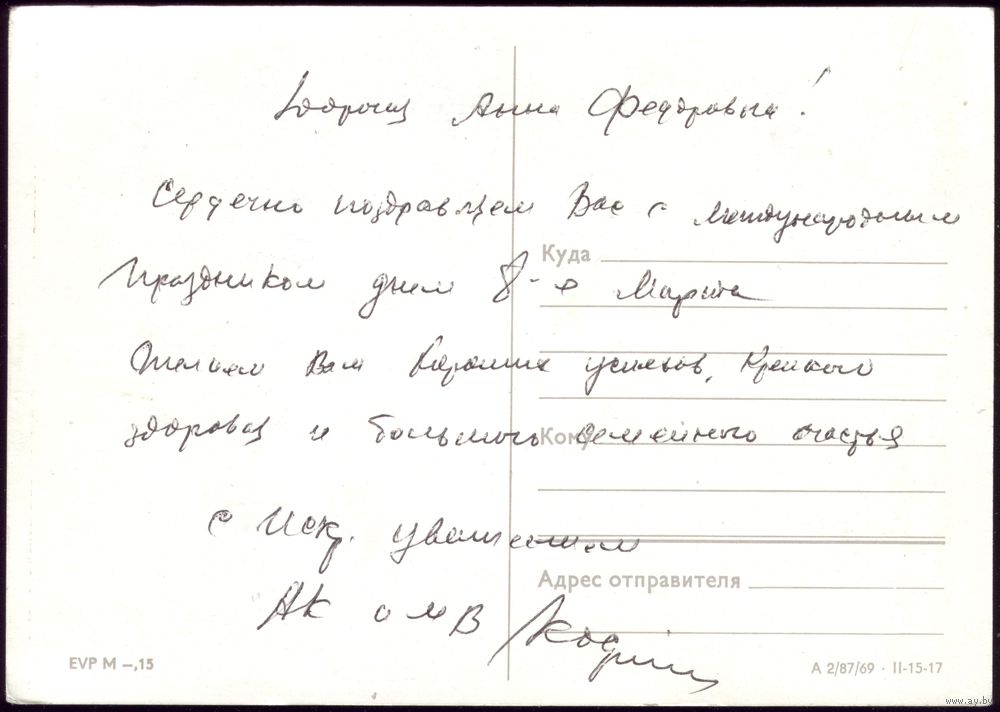 Дорогая Анна Федоровна!
Сердечно поздравляем Вас с международным
Праздником днем 8-е Марта
Желаем Вам хороших успехов, крепкого
здоровья и большого семейного счастья
с Иск. уважением
Куда
Кому
Адрес отправителя
EVP M –,15
A 2/87/69 · II-15-17
www.ay.by